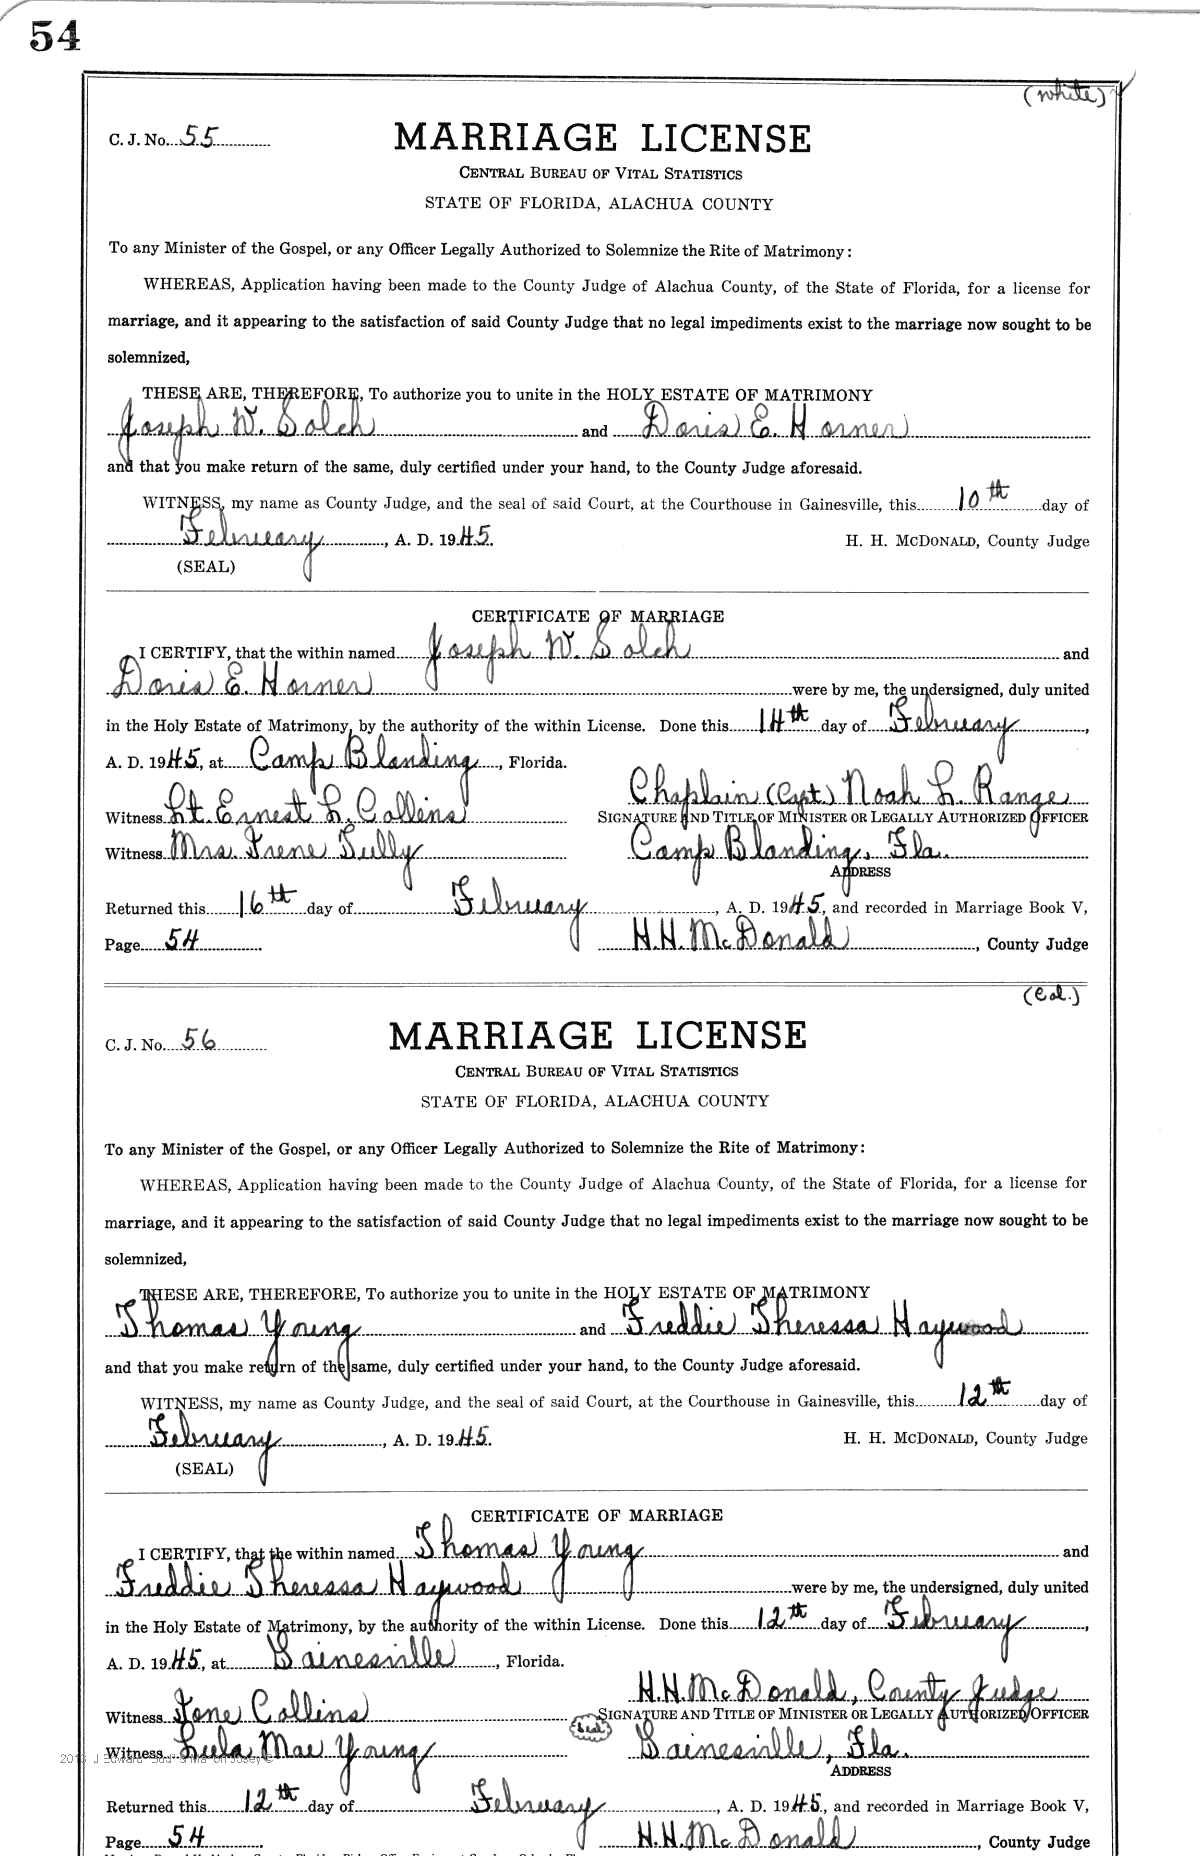 54
(white)
C. J. No. 55
MARRIAGE LICENSE
CENTRAL BUREAU OF VITAL STATISTICS
STATE OF FLORIDA, ALACHUA COUNTY
To any Minister of the Gospel, or any Officer Legally Authorized to Solemnize the Rite of Matrimony:
WHEREAS, Application having been made to the County Judge of Alachua County, of the State of Florida, for a license for
marriage, and it appearing to the satisfaction of said County Judge that no legal impediments exist to the marriage now sought to be
solemnized,
THESE ARE, THEREFORE, To authorize you to unite in the HOLY ESTATE OF MATRIMONY
Joseph W. Solch and Doris E. Horner
and that you make return of the same, duly certified under your hand, to the County Judge aforesaid.
WITNESS, my name as County Judge, and the seal of said Court, at the Courthouse in Gainesville, this 10th day of
February, A. D. 1945. H. H. MCDONALD, County Judge
(SEAL)
CERTIFICATE OF MARRIAGE
I CERTIFY, that the within named Joseph W. Solch and
Doris E. Horner were by me, the undersigned, duly united
in the Holy Estate of Matrimony, by the authority of the within License. Done this 14th day of February,
A. D. 1945, at Camp Blanding, Florida.
Chaplain (Capt.) Noah L. Range
Witness Lt Ernest L. Collins SIGNATURE AND TITLE OF MINISTER OR LEGALLY AUTHORIZED OFFICER
Witness Mrs. Irene Tully Camp Blanding, Fla.
ADDRESS
Returned this 16th day of February, A. D. 1945, and recorded in Marriage Book V,
Page 54 H.H. McDonald, County Judge
(Col.)
C. J. No. 56
MARRIAGE LICENSE
CENTRAL BUREAU OF VITAL STATISTICS
STATE OF FLORIDA, ALACHUA COUNTY
To any Minister of the Gospel, or any Officer Legally Authorized to Solemnize the Rite of Matrimony:
WHEREAS, Application having been made to the County Judge of Alachua County, of the State of Florida, for a license for
marriage, and it appearing to the satisfaction of said County Judge that no legal impediments exist to the marriage now sought to be
solemnized,
THESE ARE, THEREFORE, To authorize you to unite in the HOLY ESTATE OF MATRIMONY
Thomas Young and Freddie Theressa Haywood
and that you make return of the same, duly certified under your hand, to the County Judge aforesaid.
WITNESS, my name as County Judge, and the seal of said Court, at the Courthouse in Gainesville, this 12th day of
February, A. D. 1945. H. H. MCDONALD, County Judge
(SEAL)
CERTIFICATE OF MARRIAGE
I CERTIFY, that the within named Thomas Young and
Freddie Theressa Haywood were by me, the undersigned, duly united
in the Holy Estate of Matrimony, by the authority of the within License. Done this 12th day of February,
A. D. 1945, at Gainesville, Florida.
H.H. McDonald, County Judge
Witness Ione Collins Seal SIGNATURE AND TITLE OF MINISTER OR LEGALLY AUTHORIZED OFFICER
Witness Lula Mae Young Gainesville, Fla.
ADDRESS
Returned this 12th day of February, A. D. 1945, and recorded in Marriage Book V,
Page 54 H.H. McDonald, County Judge